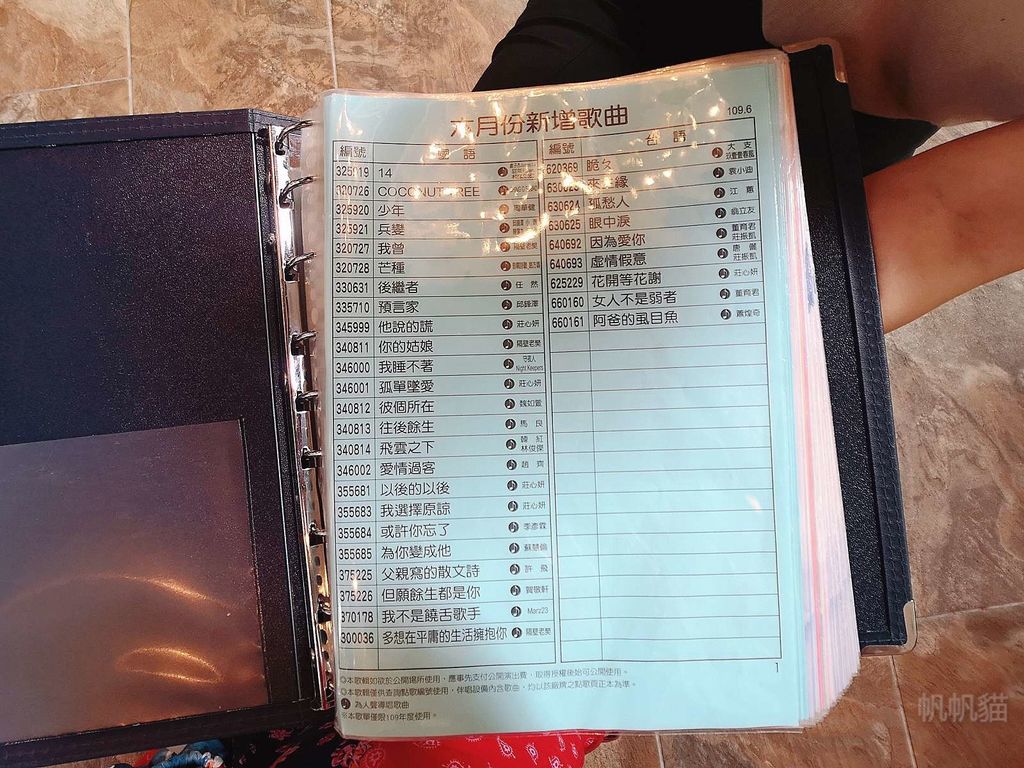 六月份新增歌曲
109.6
編號 國語
325919 14
320726 COCONUT TREE
325920 少年
325921 兵變
320727 我曾 隔壁老樊
320728 芒種
330631 後繼者 任然
335710 預言家 邱鋒澤
345999 他說的謊 莊心妍
340811 你的姑娘 隔壁老樊
346000 我睡不著 守夜人 Night Keepers
346001 孤單墜愛 莊心妍
340812 彼個所在 魏如萱
340813 往後餘生 馬良
340814 飛雲之下 韓紅 林俊傑
346002 愛情過客 趙齊
355681 以後的以後 莊心妍
355683 我選擇原諒 莊心妍
355684 或許你忘了 李彥霖
355685 為你變成他 蘇慧倫
375225 父親寫的散文詩 許飛
375226 但願餘生都是你 賀敬軒
370178 我不是饒舌歌手 Marz23
300036 多想在平庸的生活擁抱你 隔壁老樊
編號 台語
620369 脆久 大支
袁小迪
630624 孤愁人 江蕙
630625 眼中淚 翁立友
640692 因為愛你 董育君 莊振凱
640693 虛情假意 唐儷 莊振凱
625229 花開等花謝 莊心妍
660160 女人不是弱者 董育君
660161 阿爸的虱目魚 蕭煌奇
1
◎本歌輯如欲於公開場所使用，應事先支付公開演出費，取得授權後始可公開使用。
◎本歌輯僅供查詢點歌編號使用，伴唱設備內含歌曲，均以該廠牌之點歌頁正本為準。
為人聲導唱歌曲
※本歌單僅限109年度使用。
帆帆貓